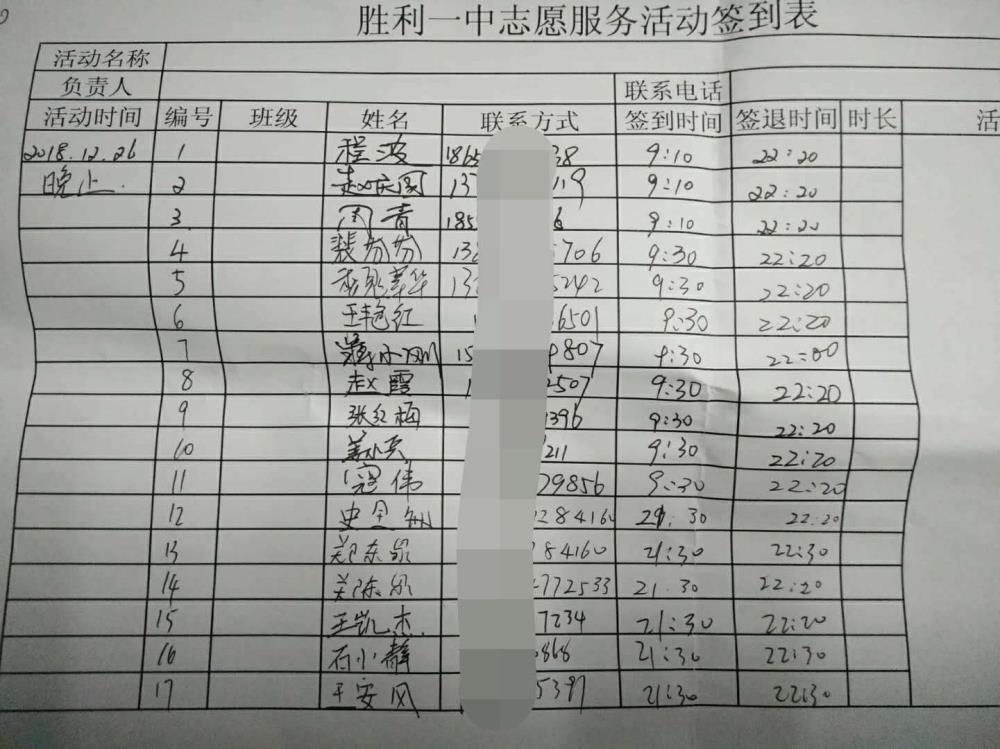 胜利一中志愿服务活动签到表
活动名称
负责人 联系电话
活动时间 编号 班级 姓名 联系方式 签到时间 签退时间 时长 活
2018.12.26 1 程波 1865 38 9:10 22:20
晚上. 2 赵庆国 13 119 9:10 22:20
3 周青 185 6 9:10 22:20
4 裴芬芬 13 5706 9:30 22:20
5 13 5242 9:30 22:20
6 王艳红 6501 9:30 22:20
7 15 4807 9:30 22:00
8 赵霞 2507 9:30 22:20
9 张红梅 1396 9:30 22:20
10 211 9:30 22:20
11 寇伟 29856 9:30 22:20
12 史全 284160 21:30 22:20
13 郑东 84160 21:30 22:30
14 772533 21.30 22:20
15 王凯杰. 7234 21:30 22:20
16 石小静 0868 21:30 22:30
17 王安风 5397 21:30 22:30